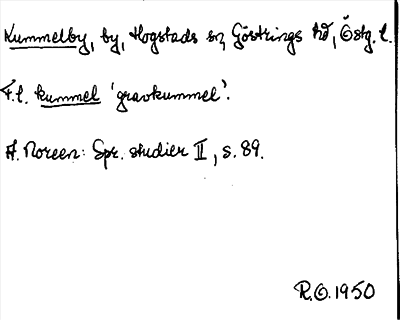 Kummelby, by, Hogstads sn, Göstrings hd, Östg. l.
F.l. kummel 'gravkummel'.
A. Noreen: Spr. studier II, s. 89.
R.O. 1950